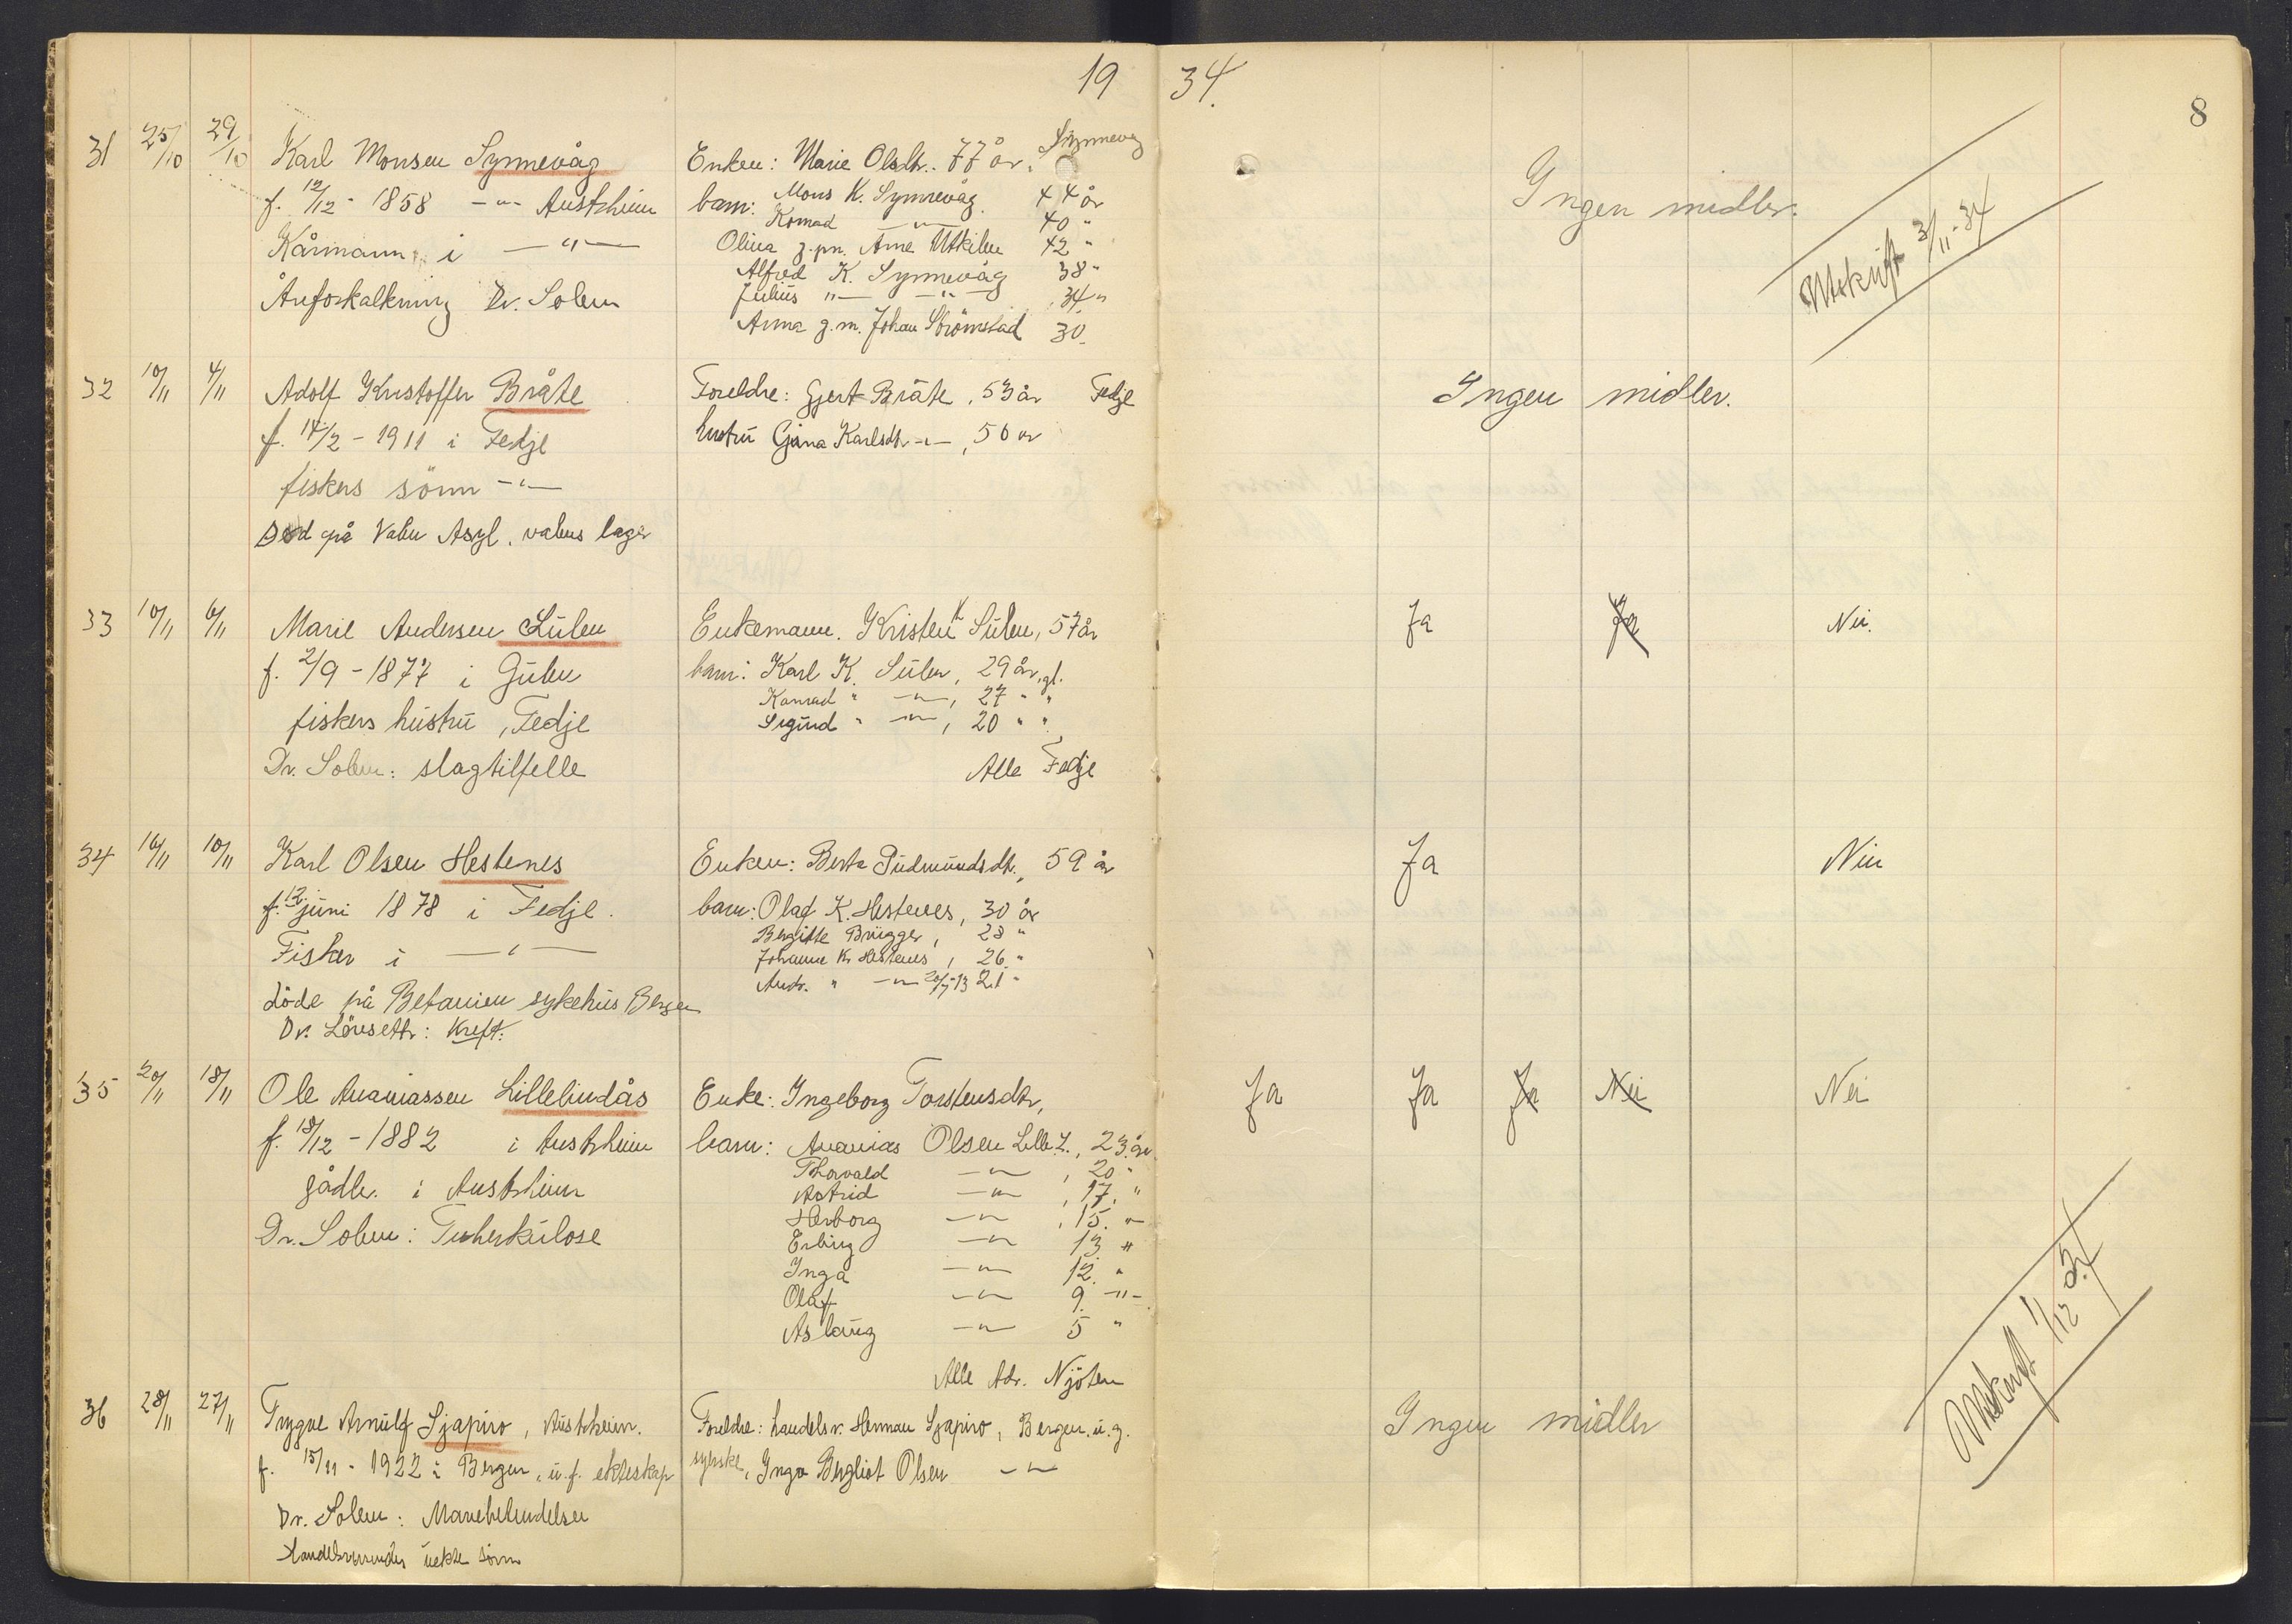 19 34.
8
31 25/10 29/10 Karl Monsen Synnevåg
f. 12/12 - 1858 -"- Austrheim
Kårmann i -"-
Åreforkalkning Dr. Solem
Enken: Marie Olsdtr. 77 år. Synnevåg
barn: Mons K. Synnevåg 44 år
Konrad -"- 40 "
Olina g.m. Arne Utkilen 42 "
Alfred K. Synnevåg 38 "
Julius "- -"- 34 "
Anna g.m. Johan Strömstad 30.
Ingen midler.
Utskrift 3/11-34
32 10/11 4/11 Adolf Kristoffer Bråte
f. 14/2 - 1911 i Fedje
fiskers sönn -"-
Död på Valen Asyl. valens lager
Foreldre: Gjert Bråte, 53 år Fedje
hustru Gjina Karlsdtr -"-, 50 år
Ingen midler.
33 10/11 6/11 Marie Andersen Sulen
f. 2/9 - 1877 i Gulen
fiskers hustru, Fedje
Dr. Solem: slagtilfelle
Enkemann. Kristen K Sulen, 57 år
barn: Karl K. Sulen, 29 år, gl.
Konrad " -"-, 27 " "
Sigurd " -"-, 20 " "
Alle Fedje
Ja Ja Nei.
34 16/11 10/11 Karl Olsen Hestenes
f. 12. juni 1878 i Fedje.
Fisker i -"-
döde på Betanien sykehus Bergen
Dr. Lönseth: Kreft.
Enken: Berta Gudmundsdtr., 59 år
barn: Olaf K. Hestenes, 30 år
Bergitte Brügger, 28 "
Johanne Kr Hestenes, 26. "
Andr. " -"- 20/7-13 21 "
Ja Nei
35 20/11 18/11 Ole Ananiassen Lillelindås
f. 18/12 - 1882 i Austrheim
gådbr. i Austrheim
Dr. Solem: Tuberkulose
Enke: Ingeborg Torstensdtr,
barn: Ananias Olsen Lille L., 23. år
Thorvald -"-, 20 "
Astrid -"-, 17. "
Herborg -"-, 15. "
Erling -"- 13 "
Inga -"- 12. "
Olaf -"- 9. -"-
Aslaug -"- 5 "
Alle Adr. Njöten
Ja Ja Ja Nei Nei
Utskrift 1/12 34
36 28/11 27/11 Trygve Arnulf Sjapiro, Austrheim.
f. 15/11 - 1922 i Bergen, u.f. ekteskap
Dr. Solem: Mavebetendelse
Handelsreisendes uekte sönn
Foreldre: handelsr. Herman Sjapiro, Bergen. u.g.
syerske, Inga Bergliot Olsen -"-
Ingen midler